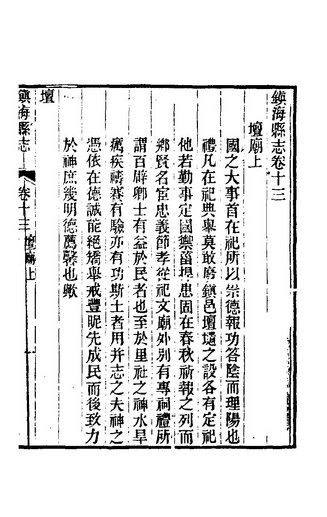 鎮海縣志卷十三
壇廟上
國之大事首在祀所以崇德報功答陰而理陽也
禮凡在祀典舉莫敢廢鎮邑壇壝之設各有定祀
他若勤事定國禦菑捍患固在春秋祈報之列而
鄉賢名宦忠義節孝從祀文廟外別有專祠禮所
謂百辟卿士有益於民者也至於里社之神水旱
癘疾禱賽有驗亦有功斯土者用并志之夫神之
憑依在德誠能絕矯舉戒豐昵先成民而後致力
於神庶幾明德薦馨也歟
壇
鎮海縣志
卷十三 壇廟上
一